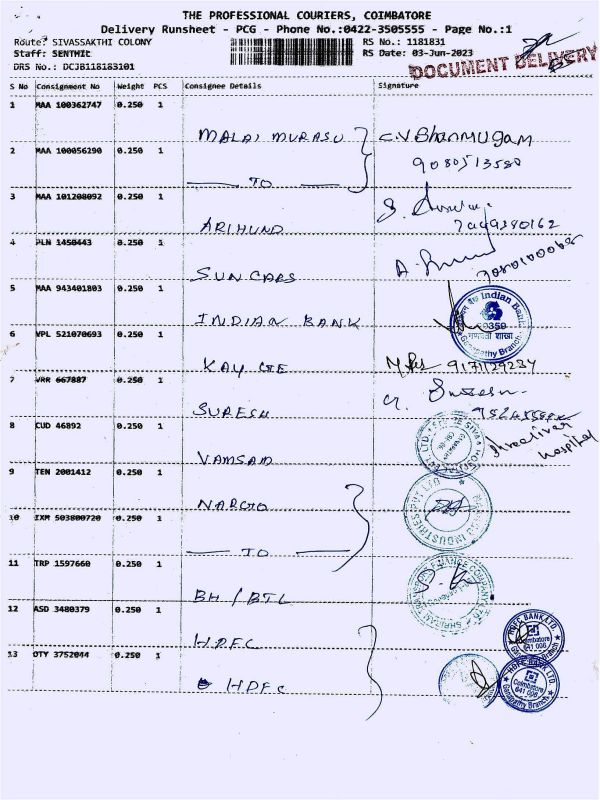 THE PROFESSIONAL COURIERS, COIMBATORE
Delivery Runsheet - PCG - Phone No.:0422-3505555 - Page No.:1
Route: SIVASSAKTHI COLONY
RS No.: 1181831
Staff: SENTHIL
RS Date: 03-Jun-2023
DRS No.: DCJB118183101
DOCUMENT DELIVERY
S No Consignment No Weight PCS Consignee Details Signature
1 MAA 100362747 0.250 1
MALAI MURASU C.V Bhanmugam
9080513580
2 MAA 100056190 0.250 1
TO
3 MAA 101208092 0.250 1
ARIHUND
4 PLN 1450443 0.250 1
SUN CARS
5 MAA 943401803 0.250 1
INDIAN BANK
Indian Bank
गणपती शाखा
Ganapathy Branch
6 VPL 521070693 0.250 1
KAY GE
7 VRR 667887 0.250 1
SURESH
8 CUD 46892 0.250 1
VAMSAM
hospital
9 TEN 2001412 0.250 1
NARGO
INDUSTRIES PVT LTD
10 IXM 503800720 0.250 1
TO
11 TRP 1597660 0.250 1
BH / BTL
12 ASD 3480379 0.250 1
HDFC
HDFC BANK LTD.
Coimbatore
641 006
Ganapathy Branch
13 OTY 3752044 0.250 1
HDFC
HDFC BANK LTD.
Coimbatore
641 006
Ganapathy Branch